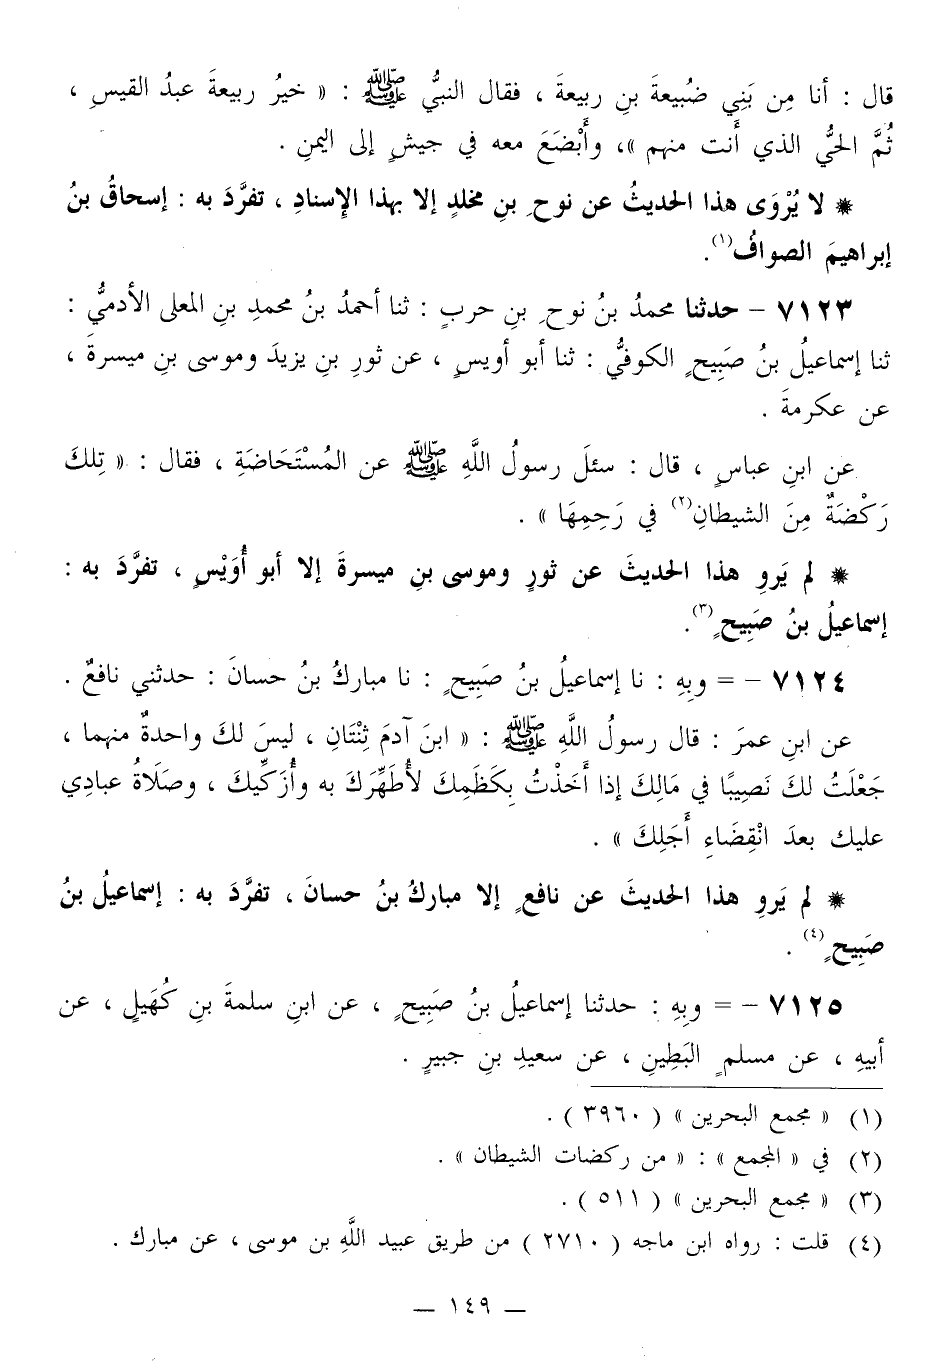 قال : أنا مِن بَنِي ضُبيعةَ بنِ ربيعةَ ، فقال النبيُّ ﷺ : « خيرُ ربيعةَ عبدُ القيسِ ،
ثُمَّ الحيُّ الذي أَنت منهم »، وأَبْضَعَ معه في جيشٍ إلى اليمنِ .
* لا يُرْوَى هذا الحديثُ عن نوحِ بنِ مخلدٍ إلا بهذا الإسنادِ ، تفرَّدَ به : إسحاقُ بنُ
إبراهيمَ الصوافُ(١).
٧١٢٣ – حدثنا محمدُ بنُ نوحِ بنِ حربٍ : ثنا أحمدُ بنُ محمدِ بنِ المعلى الأدميُّ :
ثنا إسماعيلُ بنُ صَبِيحٍ الكوفيُّ : ثنا أبو أويسٍ ، عن ثورِ بنِ يزيدَ وموسى بنِ ميسرةَ ،
عن عكرمةَ .
عن ابنِ عباسٍ ، قال : سئلَ رسولُ اللَّهِ ﷺ عن المُسْتَحَاضَةِ ، فقال : « تِلكَ
رَكْضَةٌ مِنَ الشيطانِ(٢) في رَحِمِهَا » .
* لم يَروِ هذا الحديثَ عن ثورٍ وموسى بنِ ميسرةَ إلا أبو أُوَيْسٍ ، تفرَّدَ به :
إسماعيلُ بنُ صَبِيحٍ(٣).
٧١٢٤ – = وبِهِ : نا إسماعيلُ بنُ صَبِيحٍ : نا مباركُ بنُ حسانَ : حدثني نافعٌ .
عن ابنِ عمرَ : قال رسولُ اللَّهِ ﷺ : « ابنَ آدمَ ثِنْتَانِ ، ليسَ لكَ واحدةٌ منهما ،
جَعْلَتُ لكَ نَصِيبًا في مَالِكَ إذا أَخَذْتُ بِكَظَمِكَ لأُطَهِّرَكَ به وأُزَكِّيكَ ، وصَلَاةُ عبادِي
عليك بعدَ انْقِضَاءِ أَجَلِكَ » .
* لم يَروِ هذا الحديثَ عن نافعٍ إلا مباركُ بنُ حسانَ ، تفرَّدَ به : إسماعيلُ بنُ
صَبِيحٍ(٤) .
٧١٢٥ – = وبِهِ : حدثنا إسماعيلُ بنُ صَبِيحٍ ، عن ابنِ سلمةَ بنِ كُهَيلٍ ، عن
أبيهِ ، عن مسلمٍ البَطِينِ ، عن سعيدِ بنِ جبيرٍ .
(١) « مجمع البحرين » ( ٣٩٦٠ ) .
(٢) في « المجمع » : « من ركضات الشيطان » .
(٣) « مجمع البحرين » ( ٥١١ ) .
(٤) قلت : رواه ابن ماجه ( ٢٧١٠ ) من طريق عبيد اللَّهِ بن موسى ، عن مبارك .
— ١٤٩ —